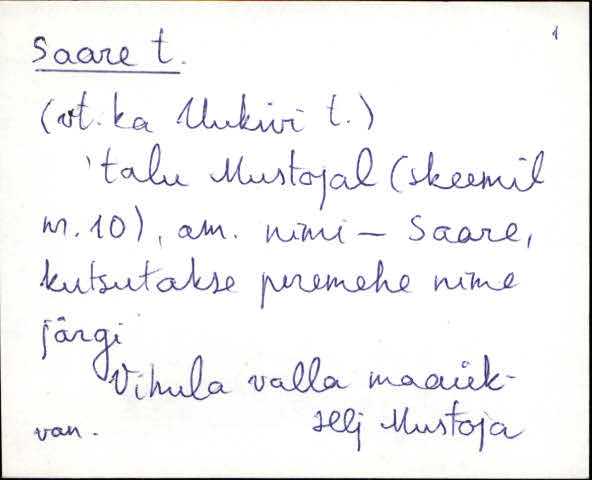 1
Saare t.
(vt. ka Uukivi t.)
'talu Mustojal (skeemil
nr. 10), am. nimi – Saare,
kutsutakse peremehe nime
järgi
Vihula valla maaüek-
van. selj Mustoja